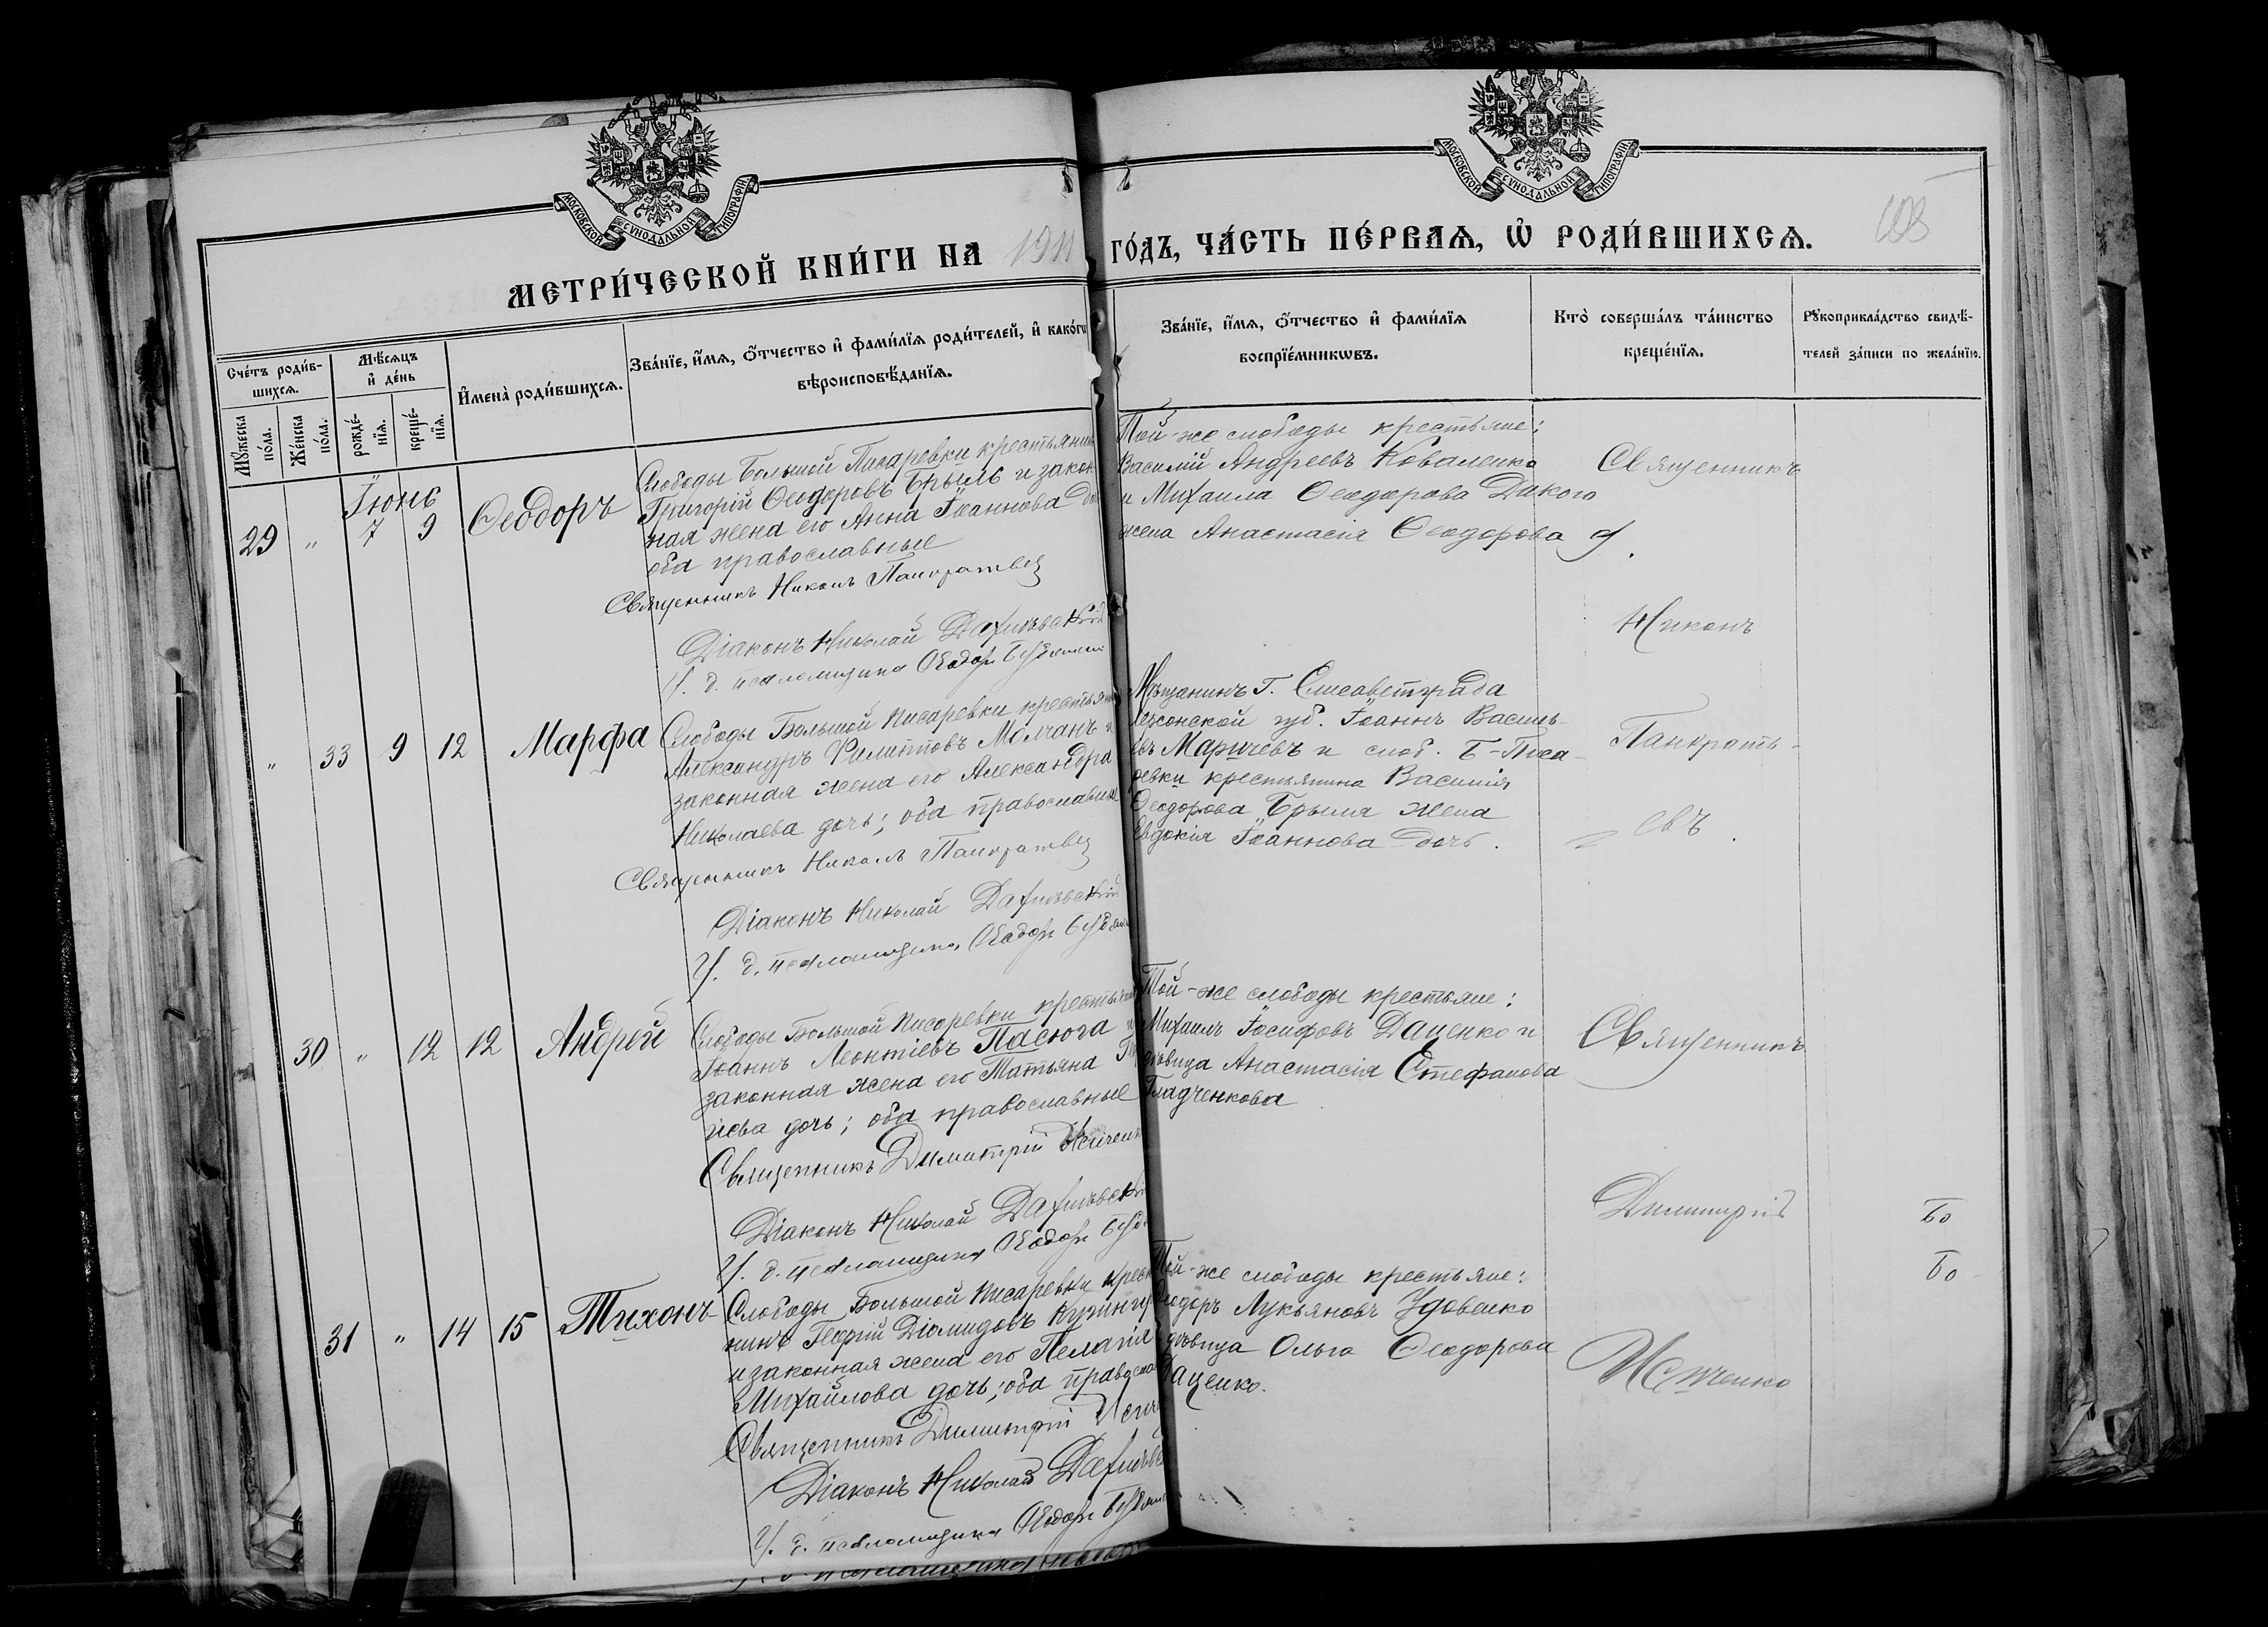 МОСКОВСКОЙ СѴНОДАЛЬНОЙ ТИПОГРАФІИ
МОСКОВСКОЙ СѴНОДАЛЬНОЙ ТИПОГРАФІИ
МЕТРИ́ЧЕСКОЙ КНИ́ГИ НА 1911 ГО́ДЪ, ЧА́СТЬ ПЕ́РВАѦ, Ѡ҆ РОДИ́ВШИХСѦ.
108
Сче́тъ роди́в-
шихсѧ.
Мꙋ́жеска по́ла.
Же́нска по́ла.
Мѣ́сѧцъ
и҆ де́нь
рожде́-
нїѧ.
креще́-
нїѧ.
И҆мена̀ роди́вшихсѧ.
Зва́нїе, и҆́мѧ, ѻ҆́тчество и҆ фами́лїѧ роди́телей, и҆ како́гѡ
вѣроисповѣ́данїѧ.
Зва́нїе, и҆́мѧ, ѻ҆́тчество и҆ фами́лїѧ
воспрїе́мникѡвъ.
Кто̀ соверша́лъ та́инство
креще́нїѧ.
Рꙋкоприкла́дство свидѣ́-
телей за́писи по жела́нїю.
Іюнь
29 " 7 9 Ѳеодоръ
Слободы Большой Писаревки крестьянинъ
Григорій Ѳеодоровъ Брыль и закон-
ная жена его Анна Іоаннова
оба православные
Священникъ Никонъ Панкратьев
Діаконъ Николай
И. д. псаломщика Ѳеодоръ
Той-же слободы крестьяне:
Василій Андреевъ Коваленко
и Михаила Ѳеодорова Дикого
жена Анастасія Ѳеодорова д.
Священникъ
Никонъ
Панкрать-
евъ.
" 33 9 12 Марфа
Слободы Большой Писаревки крестьянинъ
Александръ Филипповъ Молчанъ и
законная жена его Александра
Николаева дочь; оба православные
Священникъ Никонъ Панкратьев
Діаконъ Николай
И. д. псаломщика Ѳеодоръ
Мѣщанинъ г. Елисаветграда
Херсонской губ. Іоаннъ Василь-
евъ Маричевъ и слоб. Б-Писа-
ревки крестьянина Василія
Ѳеодорова Брыля жена
Евдокія Іоаннова дочь.
30 " 12 12 Андрей
Слободы Большой Писаревки крестьянинъ
Іоаннъ Леонтіевъ Пасюга и
законная жена его Татьяна
іева дочь; оба православные
Священникъ Димитрій
Діаконъ Николай
И. д. псаломщика Ѳеодоръ
Той-же слободы крестьяне:
Михаилъ Іосифовъ Даценко и
дѣвица Анастасія Стефанова
Гладченкова
Священникъ
Димитрій
Бо
Бо
31 " 14 15 Тихонъ
Слободы Большой Писаревки крестья-
нинъ Георгій Діомидовъ
и законная жена его Пелагія
Михайлова дочь; оба православ
Священникъ Димитрій
Діаконъ Николай
И. д. псаломщика Ѳеодоръ
Той-же слободы крестьяне:
Ѳеодоръ Лукьяновъ Удовенко
дѣвица Ольга Ѳеодорова
Даценко.